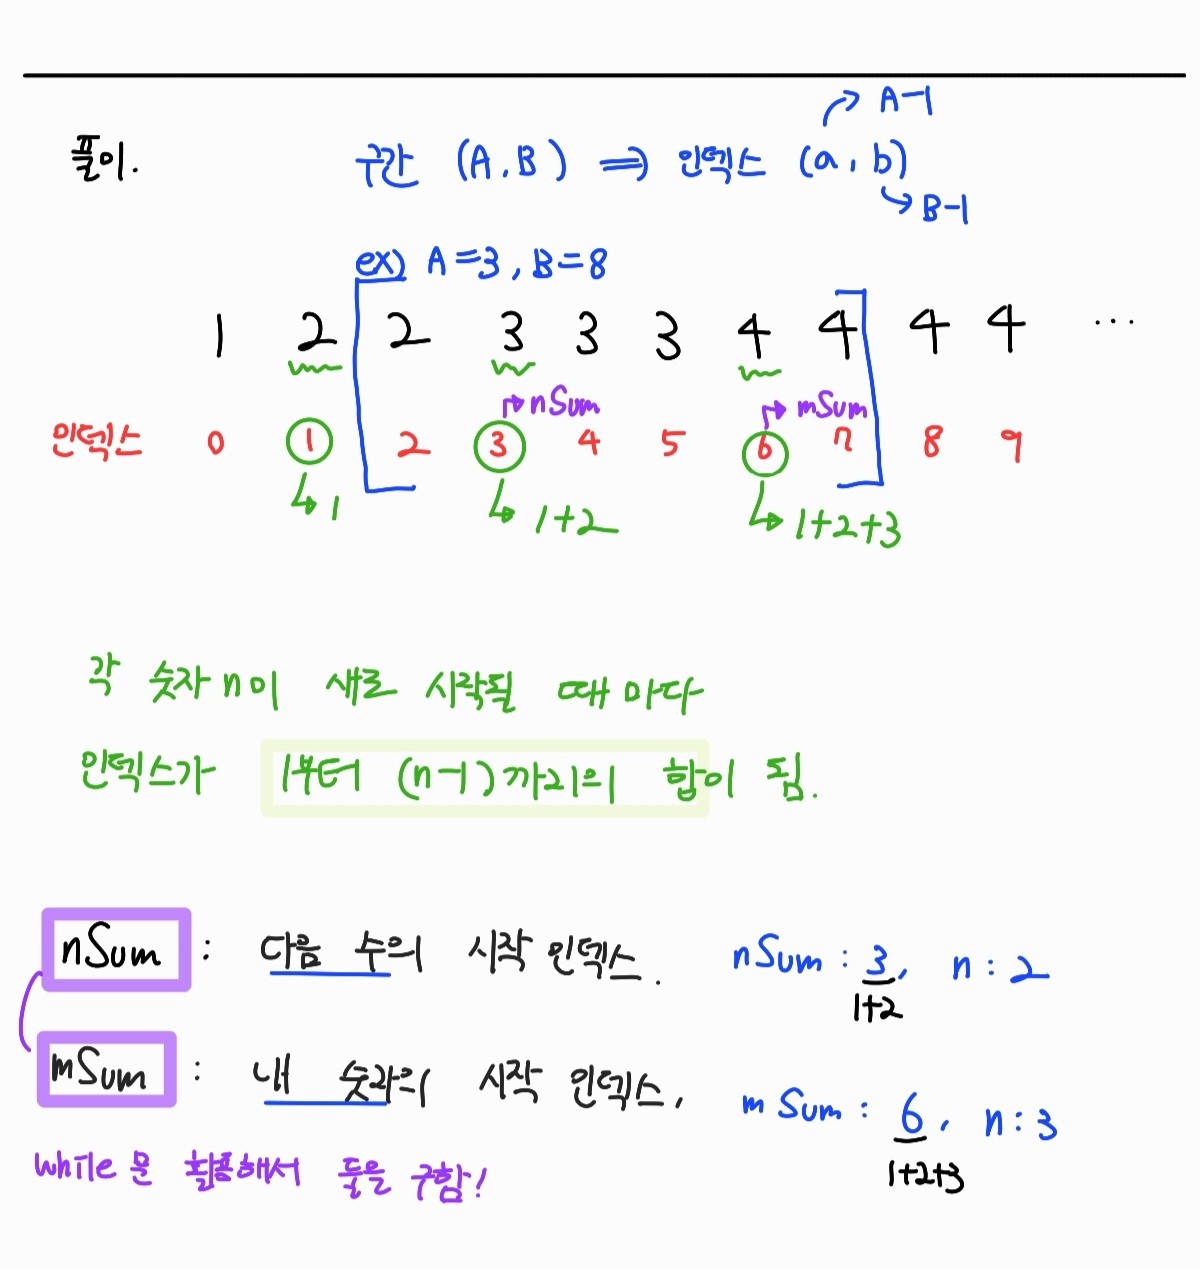 A-1
풀이. 구간 (A, B) ⇒ 인덱스 (a, b)
B-1
ex) A=3, B=8
1 2 2 3 3 3 4 4 4 4 ...
nSum mSum
인덱스 0 1 2 3 4 5 6 7 8 9
1 1+2 1+2+3
각 숫자 n이 새로 시작될 때 마다
인덱스가 1부터 (n-1)까지의 합이 됨.
nSum : 다음 수의 시작 인덱스. nSum : 3, n : 2
1+2
mSum : 내 숫자의 시작 인덱스, mSum : 6, n : 3
1+2+3
while 문 활용해서 둘을 구함!